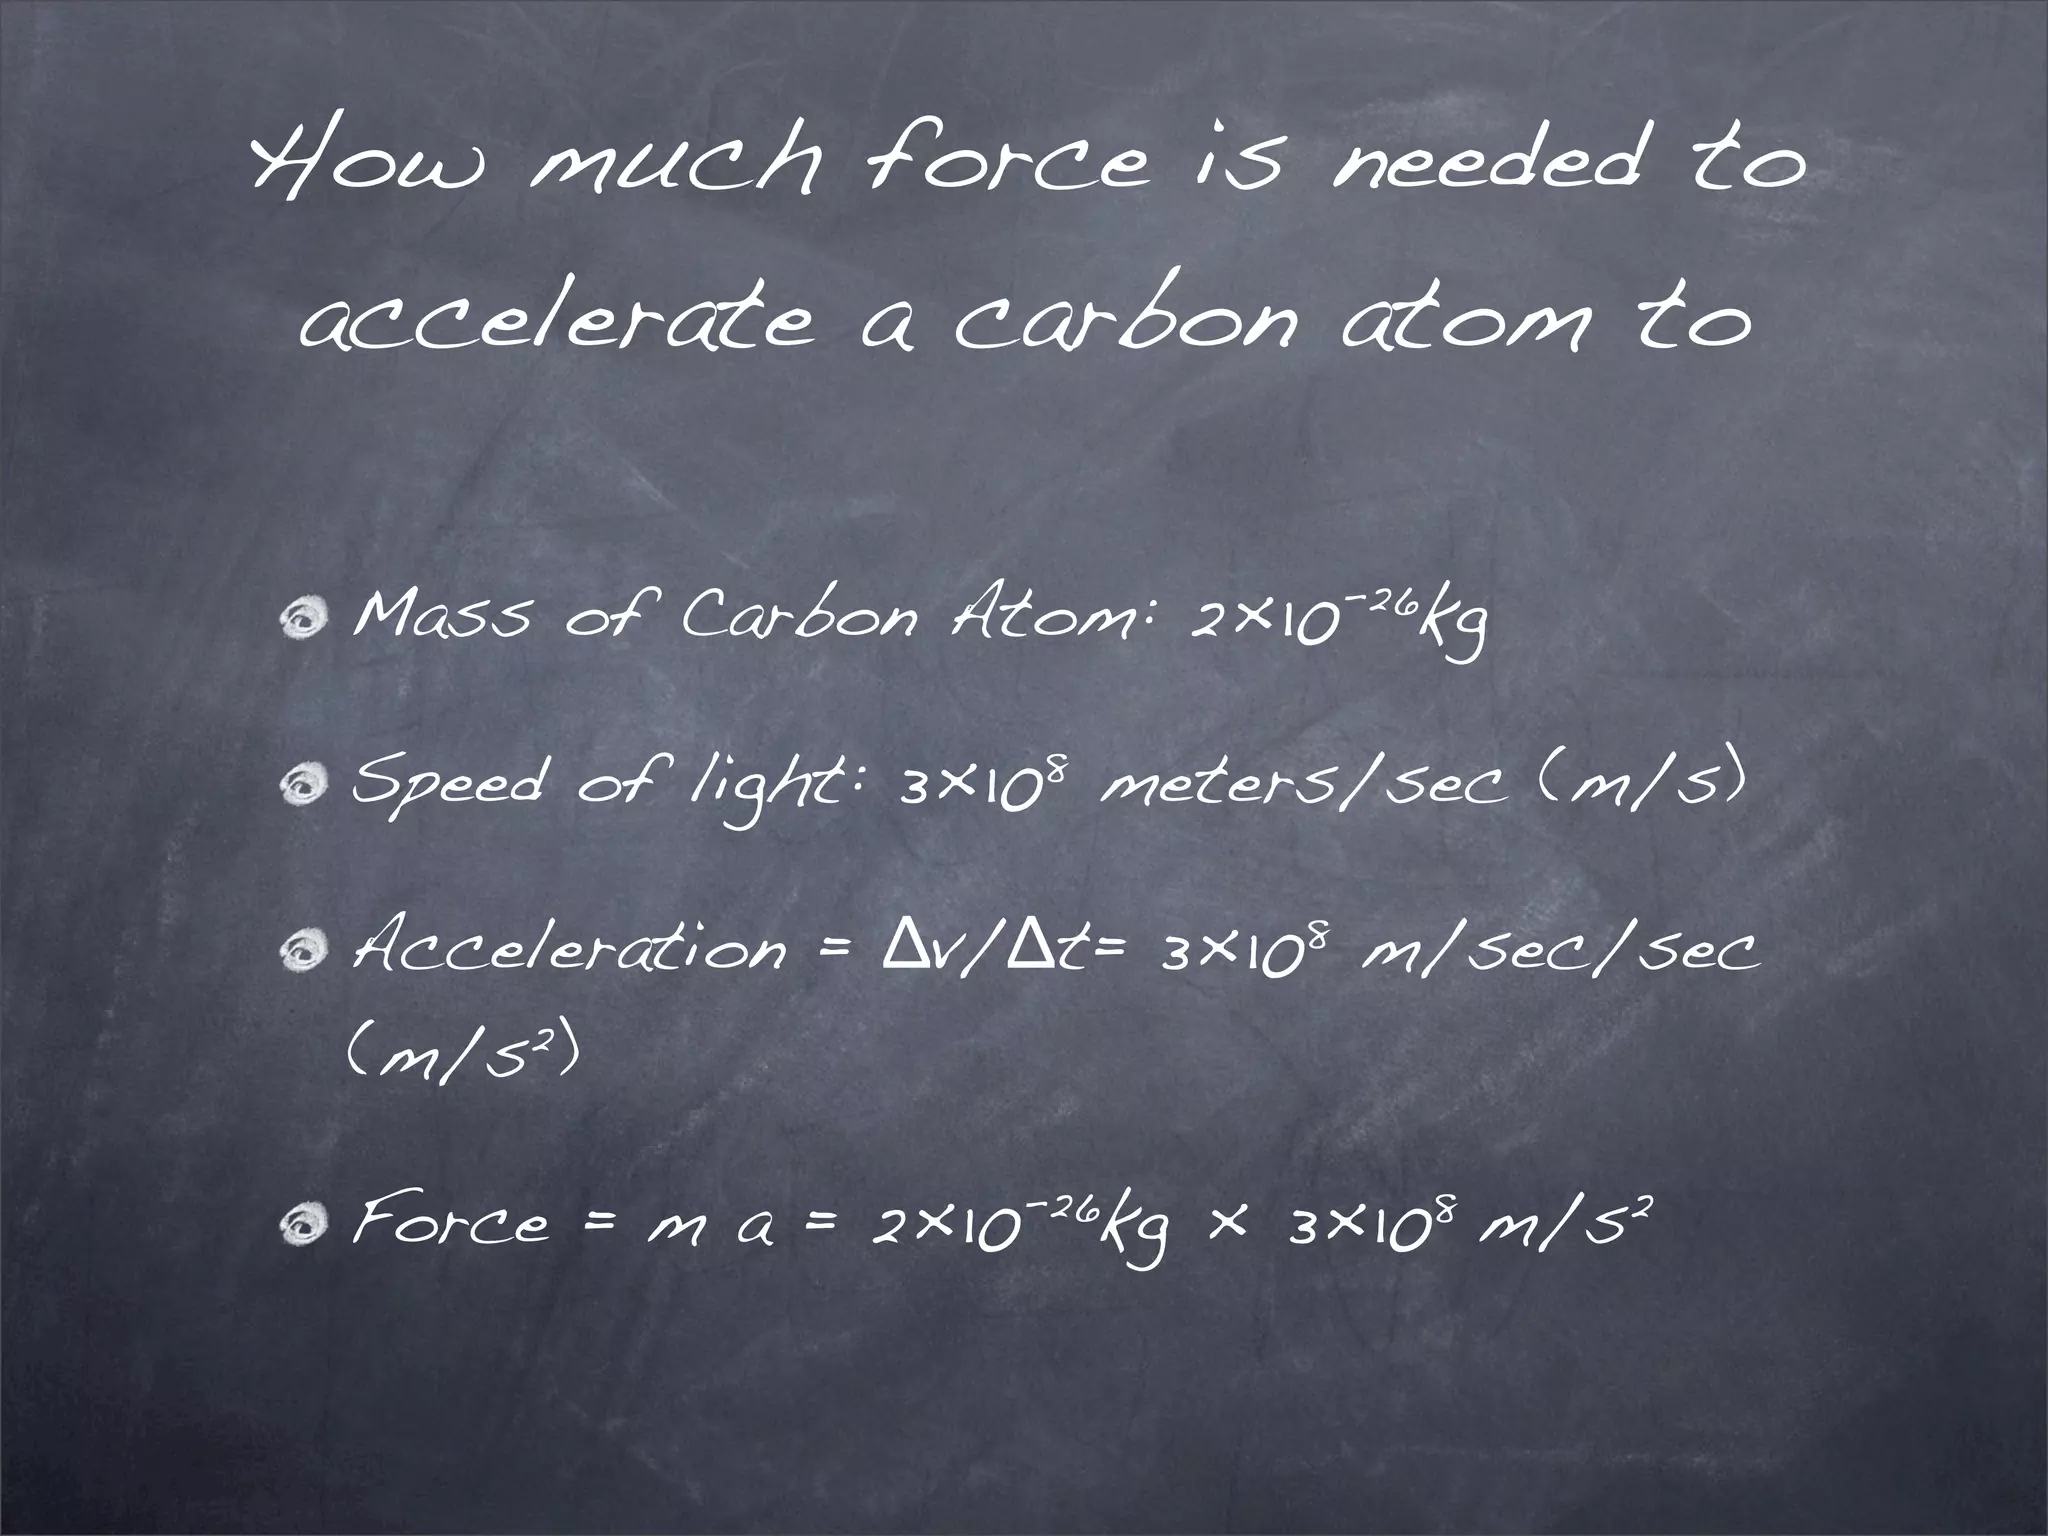 How much force is needed to
accelerate a carbon atom to
Mass of Carbon Atom: 2×10⁻²⁶kg
Speed of light: 3×10⁸ meters/sec (m/s)
Acceleration = Δv/Δt= 3×10⁸ m/sec/sec
(m/s²)
Force = m a = 2×10⁻²⁶kg × 3×10⁸ m/s²